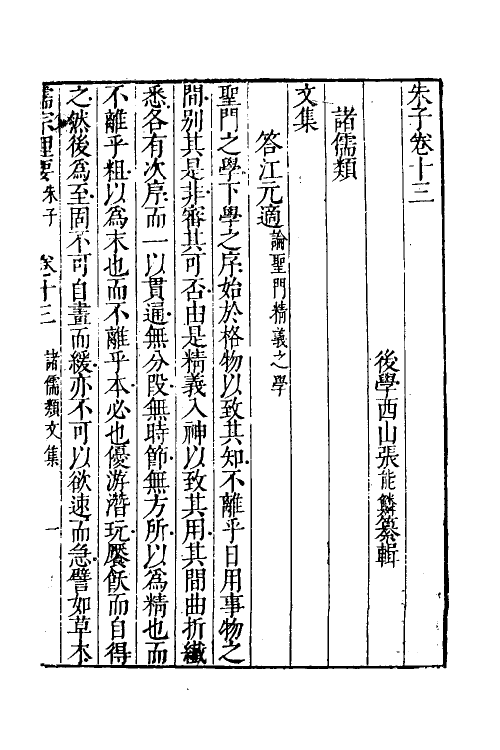 朱子卷十三
後學西山張能鱗纂輯
諸儒類
文集
答江元適論聖門精義之學
聖門之學下學之序始於格物以致其知不離乎日用事物之
間别其是非審其可否由是精義入神以致其用其間曲折纖
悉各有次序而一以貫通無分段無時節無方所以為精也而
不離乎粗以為末也而不離乎本必也優游潛玩饜飫而自得
之然後為至固不可自畫而緩亦不可以欲速而急譬如草木
儒宗理要 朱子 卷十三 諸儒類文集 一